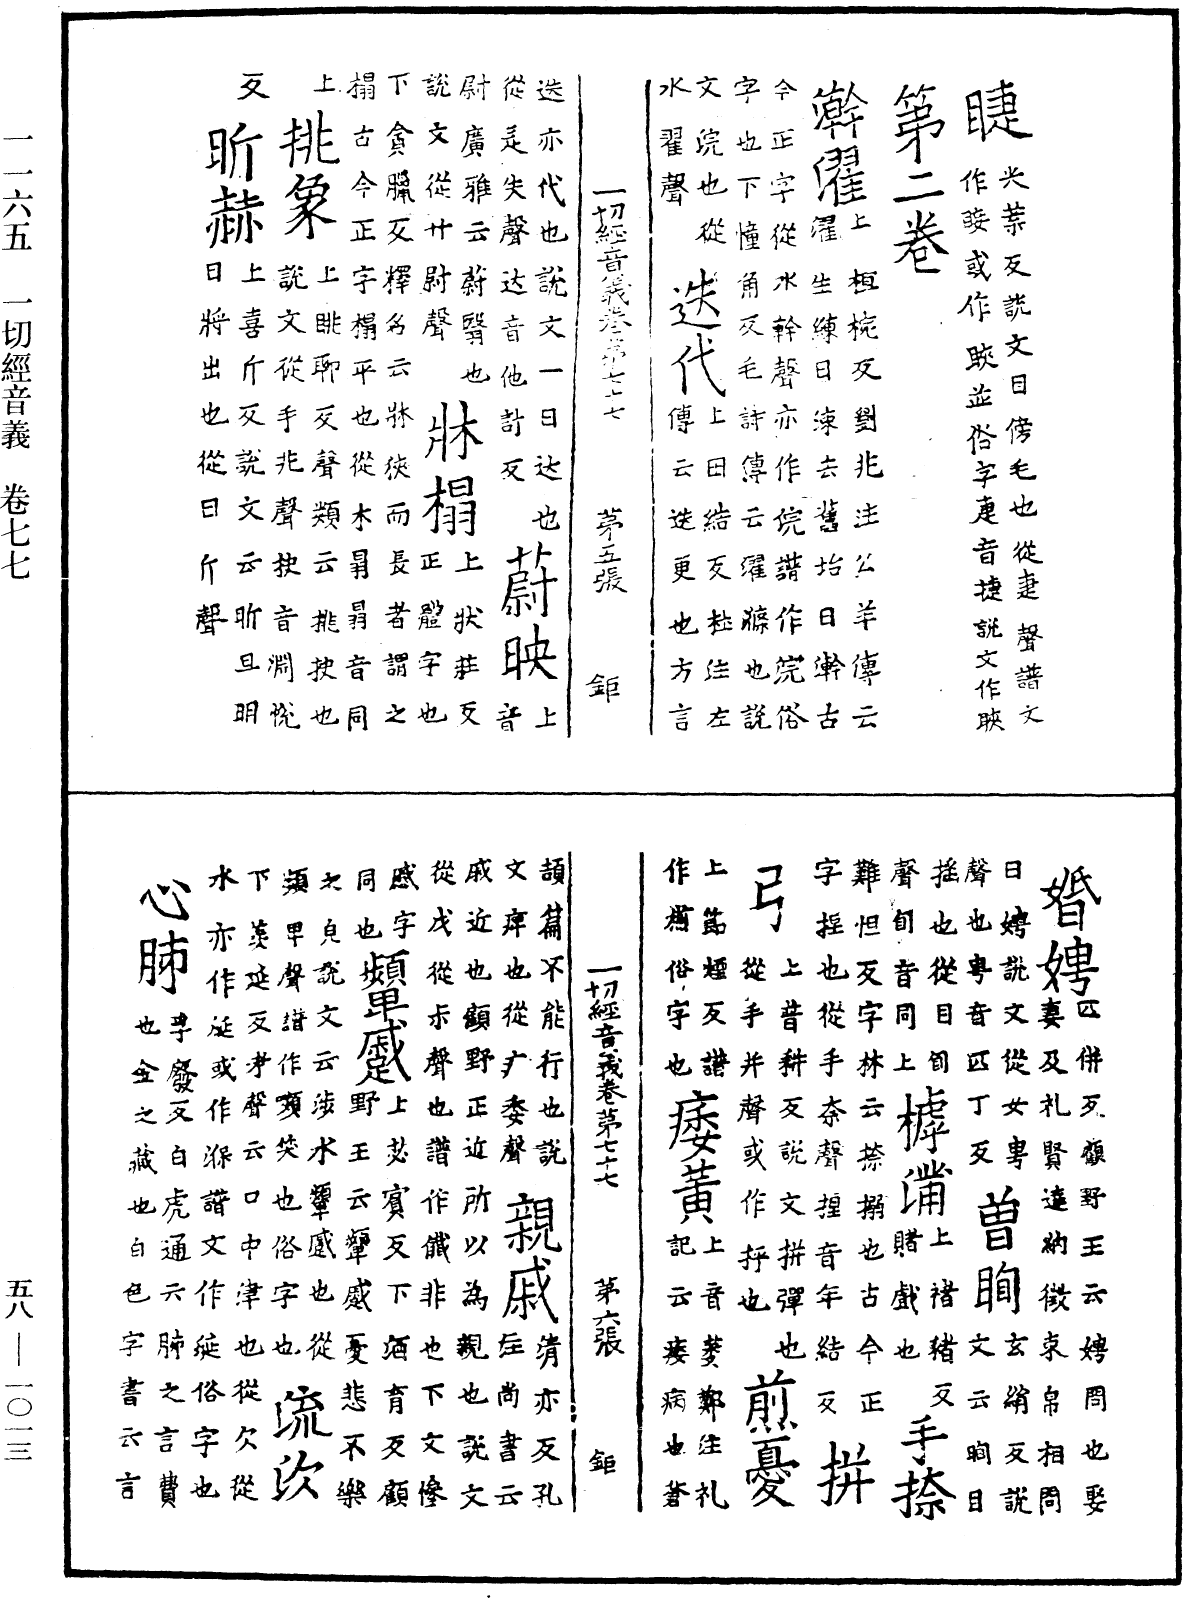 一一六五　一切經音義　卷七七
五八—一〇一三
睫
尖葉反說文目傍毛也從疌聲譜文
作𥇒或作䀹並俗字疌音捷說文作䀹
第二卷
澣濯
上桓椀反劉兆注公羊傳云
濯生練曰湅去舊垢曰澣古
今正字從水幹聲亦作浣譜作浣俗
字也下憧角反毛詩傳云濯滌也說
文浣也從
水翟聲
迭代
上田結反杜注左
傳云迭更也方言
一切經音義卷第七十七　第五張　鉅
迭亦代也說文一曰达也
從辵失聲达音他計反
蔚映
上
音
尉廣雅云蔚翳也
說文從艸尉聲
牀榻
上狀莊反
正體字也
下貪臘反釋名云牀狹而長者謂之
榻古今正字榻平也從木𦐇𦐇音同
上
挑象
上眺聊反聲類云挑抉也
說文從手兆聲抉音淵悅
反
昕赫
上喜斤反說文云昕旦明
日將出也從日斤聲
婚娉
匹併反顧野王云娉問也娶
妻及礼賢達納徵束帛相問
曰娉說文從女甹
聲也甹音匹丁反
曽眴
玄絹反說
文云眴目
搖也從目旬
聲旬音同上
樗蒱
上褚豬反
賭戲也
手捺
難怛反字林云捺搦也古今正
字捏也從手奈聲捏音年結反
拼弓
上普耕反說文拼彈也
從手并聲或作抨也
煎憂
上節煙反譜
作㷙俗字也
痿黃
上音萎鄭注礼
記云痿病也蒼
一切經音義卷第七十七　第六張　鉅
頡篇不能行也說
文痺也從疒委聲
親戚
清亦反孔
注尚書云
戚近也顧野正近所以為親也說文
從戉從尗聲也譜作𢧵非也下文慘
慼字
同也
顰蹙
上苾賓反下酒育反顧
野王云顰蹙憂悲不樂
之皃說文云涉水顰蹙也從
頻卑聲譜作嚬笑也俗字也
流㳄
下羨延反考聲云口中津也從欠從
水亦作涎或作㳄譜文作綖俗字也
心肺
孚廢反白虎通云肺之言費
也金之藏也白色字書云言